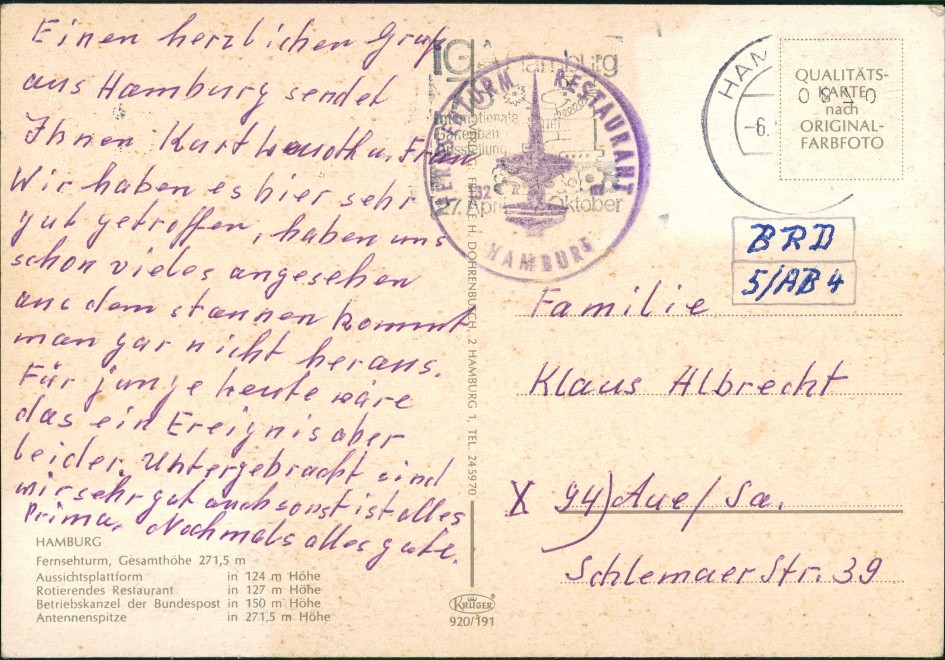 Einen herzlichen Gruß
aus Hamburg sendet
Ihnen Kurt u. Frau
Wir haben es hier sehr
gut getroffen, haben uns
schon vieles angesehen
aus dem staunen kommt
man gar nicht heraus.
Für junge Leute wäre
das ein Ereignis aber
leider. Untergebracht sind
wir sehr gut auch sonst ist alles
Prima. Nochmals alles gute.
HAMBURG
Fernsehturm, Gesamthöhe 271,5 m
Aussichtsplattform in 124 m Höhe
Rotierendes Restaurant in 127 m Höhe
Betriebskanzel der Bundespost in 150 m Höhe
Antennenspitze in 271,5 m Höhe
IGA Hamburg
Internationale
Gartenbau
Ausstellung
27. April Oktober
FERNSEHTURM RESTAURANT
HAMBURG
H. DOHRENBUSCH, 2 HAMBURG 1, TEL. 245970
KRÜGER
920/191
HAM
-6.
QUALITÄTS-
KARTE
nach
ORIGINAL-
FARBFOTO
BRD
5/AB4
Familie
Klaus Albrecht
X 94) Aue/Sa.
Schlemaer Str. 39